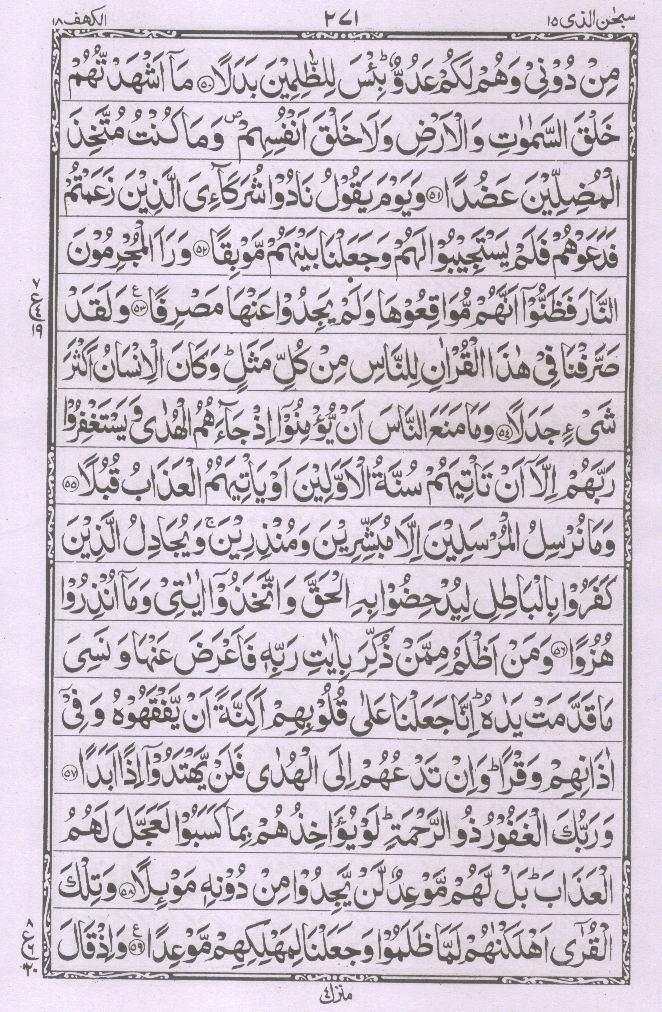 سبحٰن الذی ۱۵ ۲۷۱ الکهف ۱۸
مِنْ دُوْنِیْ وَهُمْ لَكُمْ عَدُوٌّ ؕ بِئْسَ لِلظّٰلِمِیْنَ بَدَلًا ۝۵۰ مَاۤ اَشْهَدْتُّهُمْ
خَلْقَ السَّمٰوٰتِ وَالْاَرْضِ وَلَا خَلْقَ اَنْفُسِهِمْ ۪ وَمَا كُنْتُ مُتَّخِذَ
الْمُضِلِّیْنَ عَضُدًا ۝۵۱ وَیَوْمَ یَقُوْلُ نَادُوْا شُرَكَآءِیَ الَّذِیْنَ زَعَمْتُمْ
فَدَعَوْهُمْ فَلَمْ یَسْتَجِیْبُوْا لَهُمْ وَجَعَلْنَا بَیْنَهُمْ مَّوْبِقًا ۝۵۲ وَرَاَ الْمُجْرِمُوْنَ
النَّارَ فَظَنُّوْۤا اَنَّهُمْ مُّوَاقِعُوْهَا وَلَمْ یَجِدُوْا عَنْهَا مَصْرِفًا ۝۵۳ ع وَلَقَدْ
۷ ع ۴ ۱۹
صَرَّفْنَا فِیْ هٰذَا الْقُرْاٰنِ لِلنَّاسِ مِنْ كُلِّ مَثَلٍ ؕ وَكَانَ الْاِنْسَانُ اَكْثَرَ
شَیْءٍ جَدَلًا ۝۵۴ وَمَا مَنَعَ النَّاسَ اَنْ یُّؤْمِنُوْۤا اِذْ جَآءَهُمُ الْهُدٰی وَیَسْتَغْفِرُوْا
رَبَّهُمْ اِلَّاۤ اَنْ تَاْتِیَهُمْ سُنَّةُ الْاَوَّلِیْنَ اَوْ یَاْتِیَهُمُ الْعَذَابُ قُبُلًا ۝۵۵
وَمَا نُرْسِلُ الْمُرْسَلِیْنَ اِلَّا مُبَشِّرِیْنَ وَمُنْذِرِیْنَ ۚ وَیُجَادِلُ الَّذِیْنَ
كَفَرُوْا بِالْبَاطِلِ لِیُدْحِضُوْا بِهِ الْحَقَّ وَاتَّخَذُوْۤا اٰیٰتِیْ وَمَاۤ اُنْذِرُوْا
هُزُوًا ۝۵۶ وَمَنْ اَظْلَمُ مِمَّنْ ذُكِّرَ بِاٰیٰتِ رَبِّهٖ فَاَعْرَضَ عَنْهَا وَنَسِیَ
مَا قَدَّمَتْ یَدٰهُ ؕ اِنَّا جَعَلْنَا عَلٰی قُلُوْبِهِمْ اَكِنَّةً اَنْ یَّفْقَهُوْهُ وَفِیْۤ
اٰذَانِهِمْ وَقْرًا ؕ وَاِنْ تَدْعُهُمْ اِلَی الْهُدٰی فَلَنْ یَّهْتَدُوْۤا اِذًا اَبَدًا ۝۵۷
وَرَبُّكَ الْغَفُوْرُ ذُو الرَّحْمَةِ ؕ لَوْ یُؤَاخِذُهُمْ بِمَا كَسَبُوْا لَعَجَّلَ لَهُمُ
الْعَذَابَ ؕ بَلْ لَّهُمْ مَّوْعِدٌ لَّنْ یَّجِدُوْا مِنْ دُوْنِهٖ مَوْىِٕلًا ۝۵۸ وَتِلْكَ
الْقُرٰۤی اَهْلَكْنٰهُمْ لَمَّا ظَلَمُوْا وَجَعَلْنَا لِمَهْلِكِهِمْ مَّوْعِدًا ۝۵۹ ع وَاِذْ قَالَ
۸ ع ۶ ۲۰
منزل ۴